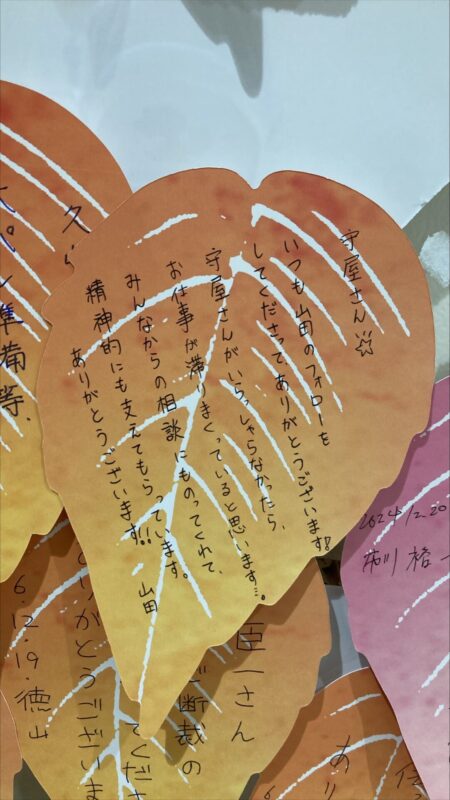 守屋さん☆
いつも山田のフォローを
してくださってありがとうございます!
守屋さんがいらっしゃらなかったら、
お仕事が滞りまくっていると思います…。
みんなからの相談にものってくれて、
精神的にも支えてもらっています。
ありがとうございます!! 山田
久ら
ペン準備等、
2024.12.20
市川 裕一
臣一さん
ご断裁の
てくださ
りがとうございま
6.12.19.徳山
あり